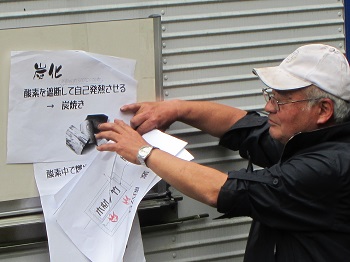 炭化
酸素を遮断して自己発熱させる
→ 炭焼き
酸素中で
木材／竹